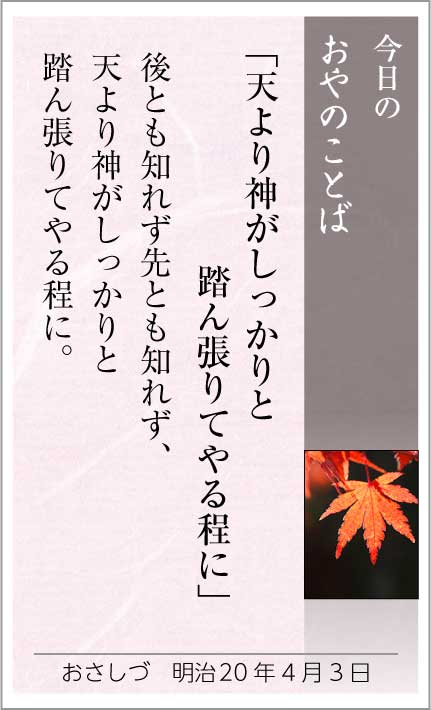 今日の
おやのことば
「天より神がしっかりと
踏ん張りてやる程に」
後とも知れず先とも知れず、
天より神がしっかりと
踏ん張りてやる程に。
おさしづ　明治20年4月3日